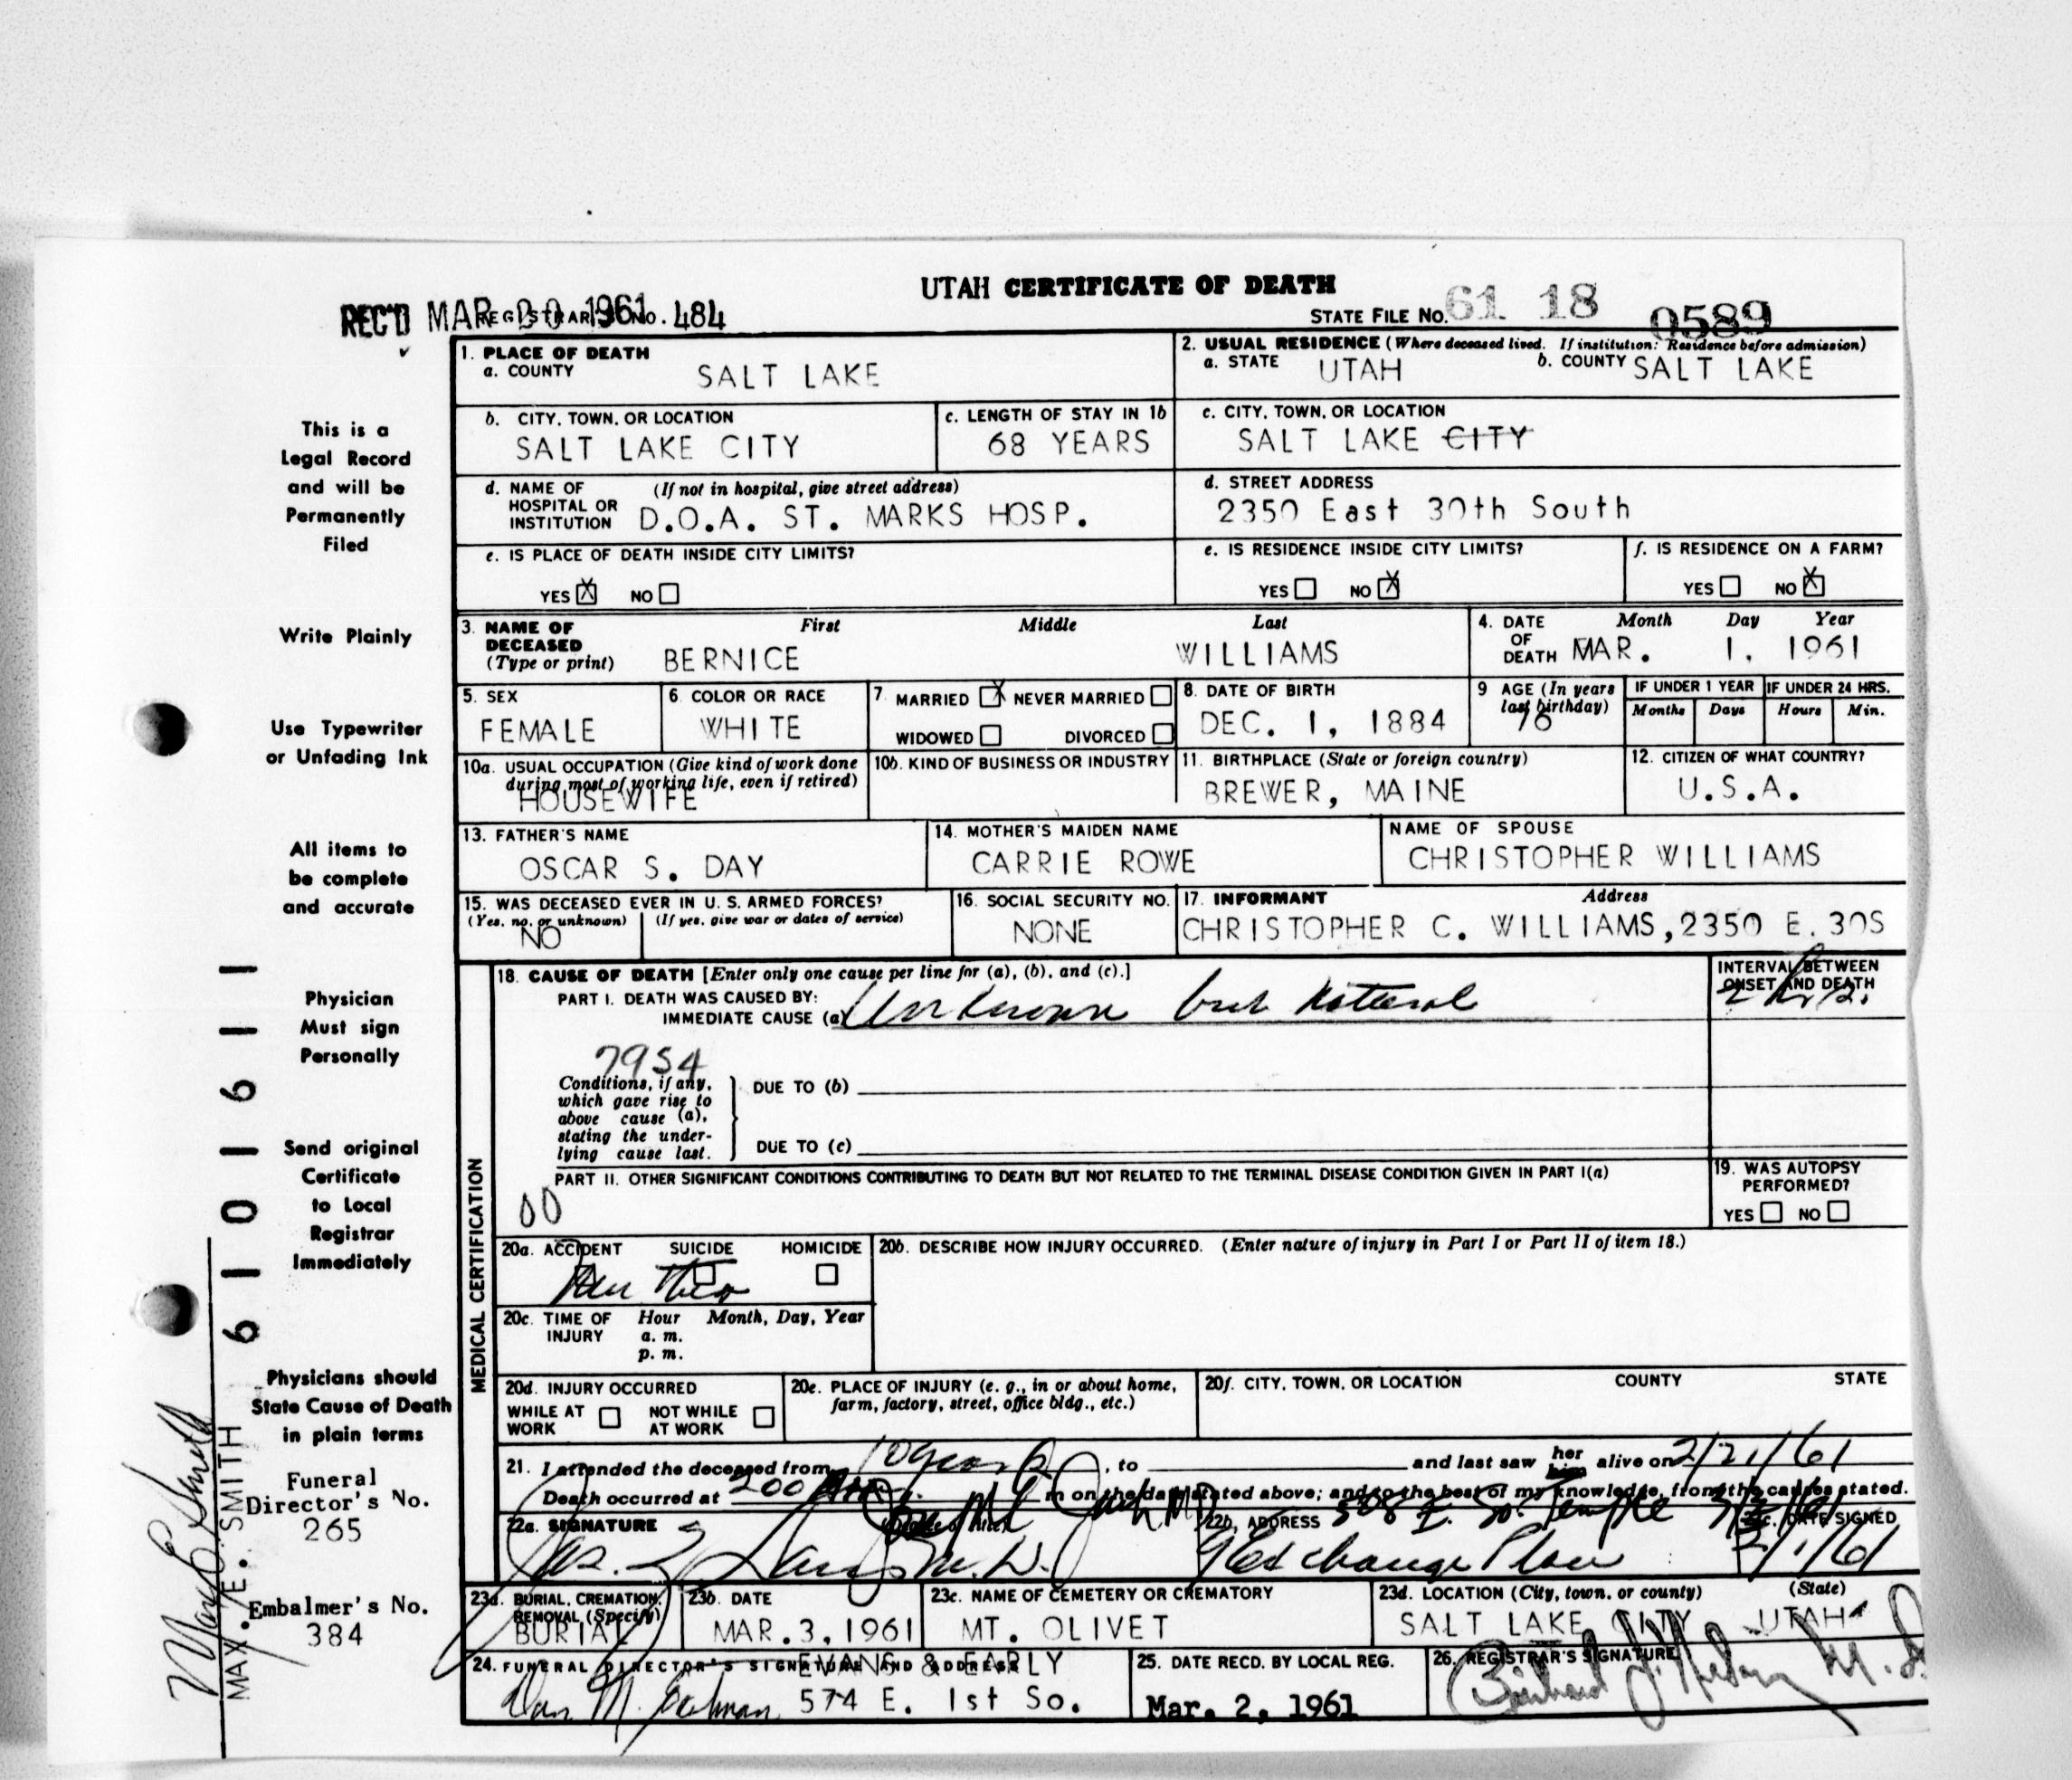 UTAH CERTIFICATE OF DEATH
REC'D MAR 30 1961 REGISTRAR'S NO. 484
STATE FILE NO. 61 18 0589
1. PLACE OF DEATH
a. COUNTY SALT LAKE
2. USUAL RESIDENCE (Where deceased lived. If institution: Residence before admission)
a. STATE UTAH b. COUNTY SALT LAKE
b. CITY, TOWN, OR LOCATION
SALT LAKE CITY
c. LENGTH OF STAY IN 1b
68 YEARS
c. CITY, TOWN, OR LOCATION
SALT LAKE CITY
d. NAME OF HOSPITAL OR INSTITUTION (If not in hospital, give street address)
D.O.A. ST. MARKS HOSP.
d. STREET ADDRESS
2350 East 30th South
e. IS PLACE OF DEATH INSIDE CITY LIMITS?
YES X NO
e. IS RESIDENCE INSIDE CITY LIMITS?
YES NO X
f. IS RESIDENCE ON A FARM?
YES NO X
3. NAME OF DECEASED (Type or print)
First Middle Last
BERNICE WILLIAMS
4. DATE OF DEATH Month Day Year
MAR. 1, 1961
5. SEX
FEMALE
6. COLOR OR RACE
WHITE
7. MARRIED X NEVER MARRIED
WIDOWED DIVORCED
8. DATE OF BIRTH
DEC. 1, 1884
9 AGE (In years last birthday)
76
IF UNDER 1 YEAR IF UNDER 24 HRS.
Months Days Hours Min.
10a. USUAL OCCUPATION (Give kind of work done during most of working life, even if retired)
HOUSEWIFE
10b. KIND OF BUSINESS OR INDUSTRY
11. BIRTHPLACE (State or foreign country)
BREWER, MAINE
12. CITIZEN OF WHAT COUNTRY?
U.S.A.
13. FATHER'S NAME
OSCAR S. DAY
14. MOTHER'S MAIDEN NAME
CARRIE ROWE
NAME OF SPOUSE
CHRISTOPHER WILLIAMS
15. WAS DECEASED EVER IN U. S. ARMED FORCES?
(Yes, no, or unknown) (If yes, give war or dates of service)
NO
16. SOCIAL SECURITY NO.
NONE
17. INFORMANT Address
CHRISTOPHER C. WILLIAMS, 2350 E. 30S
MEDICAL CERTIFICATION
18. CAUSE OF DEATH [Enter only one cause per line for (a), (b), and (c).]
PART I. DEATH WAS CAUSED BY:
IMMEDIATE CAUSE (a) Unknown but natural
INTERVAL BETWEEN ONSET AND DEATH
2 hrs.
7954
Conditions, if any, which gave rise to above cause (a), stating the underlying cause last.
DUE TO (b)
DUE TO (c)
PART II. OTHER SIGNIFICANT CONDITIONS CONTRIBUTING TO DEATH BUT NOT RELATED TO THE TERMINAL DISEASE CONDITION GIVEN IN PART I(a)
00
19. WAS AUTOPSY PERFORMED?
YES NO
20a. ACCIDENT SUICIDE HOMICIDE
20b. DESCRIBE HOW INJURY OCCURRED. (Enter nature of injury in Part I or Part II of item 18.)
20c. TIME OF INJURY Hour Month, Day, Year
a. m.
p. m.
20d. INJURY OCCURRED
WHILE AT WORK NOT WHILE AT WORK
20e. PLACE OF INJURY (e. g., in or about home, farm, factory, street, office bldg., etc.)
20f. CITY, TOWN, OR LOCATION COUNTY STATE
21. I attended the deceased from 10 years, to and last saw her him alive on 2/21/61
Death occurred at 200 m on the date stated above; and to the best of my knowledge, from the causes stated.
22a. SIGNATURE (Degree or title)
M.D.
22b. ADDRESS 508 E. So. Temple
9 Exchange Place
22c. DATE SIGNED
3/1/61
23a. BURIAL, CREMATION, REMOVAL (Specify)
BURIAL
23b. DATE
MAR. 3, 1961
23c. NAME OF CEMETERY OR CREMATORY
MT. OLIVET
23d. LOCATION (City, town, or county) (State)
SALT LAKE CITY UTAH
24. FUNERAL DIRECTOR'S SIGNATURE AND ADDRESS
EVANS & EARLY
574 E. 1st So.
25. DATE RECD. BY LOCAL REG.
Mar. 2, 1961
26. REGISTRAR'S SIGNATURE
This is a
Legal Record
and will be
Permanently
Filed
Write Plainly
Use Typewriter
or Unfading Ink
All items to
be complete
and accurate
Physician
Must sign
Personally
Send original
Certificate
to Local
Registrar
Immediately
Physicians should
State Cause of Death
in plain terms
Funeral
Director's No.
265
Embalmer's No.
384
6 1 0 1 6 1 1
Max E Smith
MAX E. SMITH